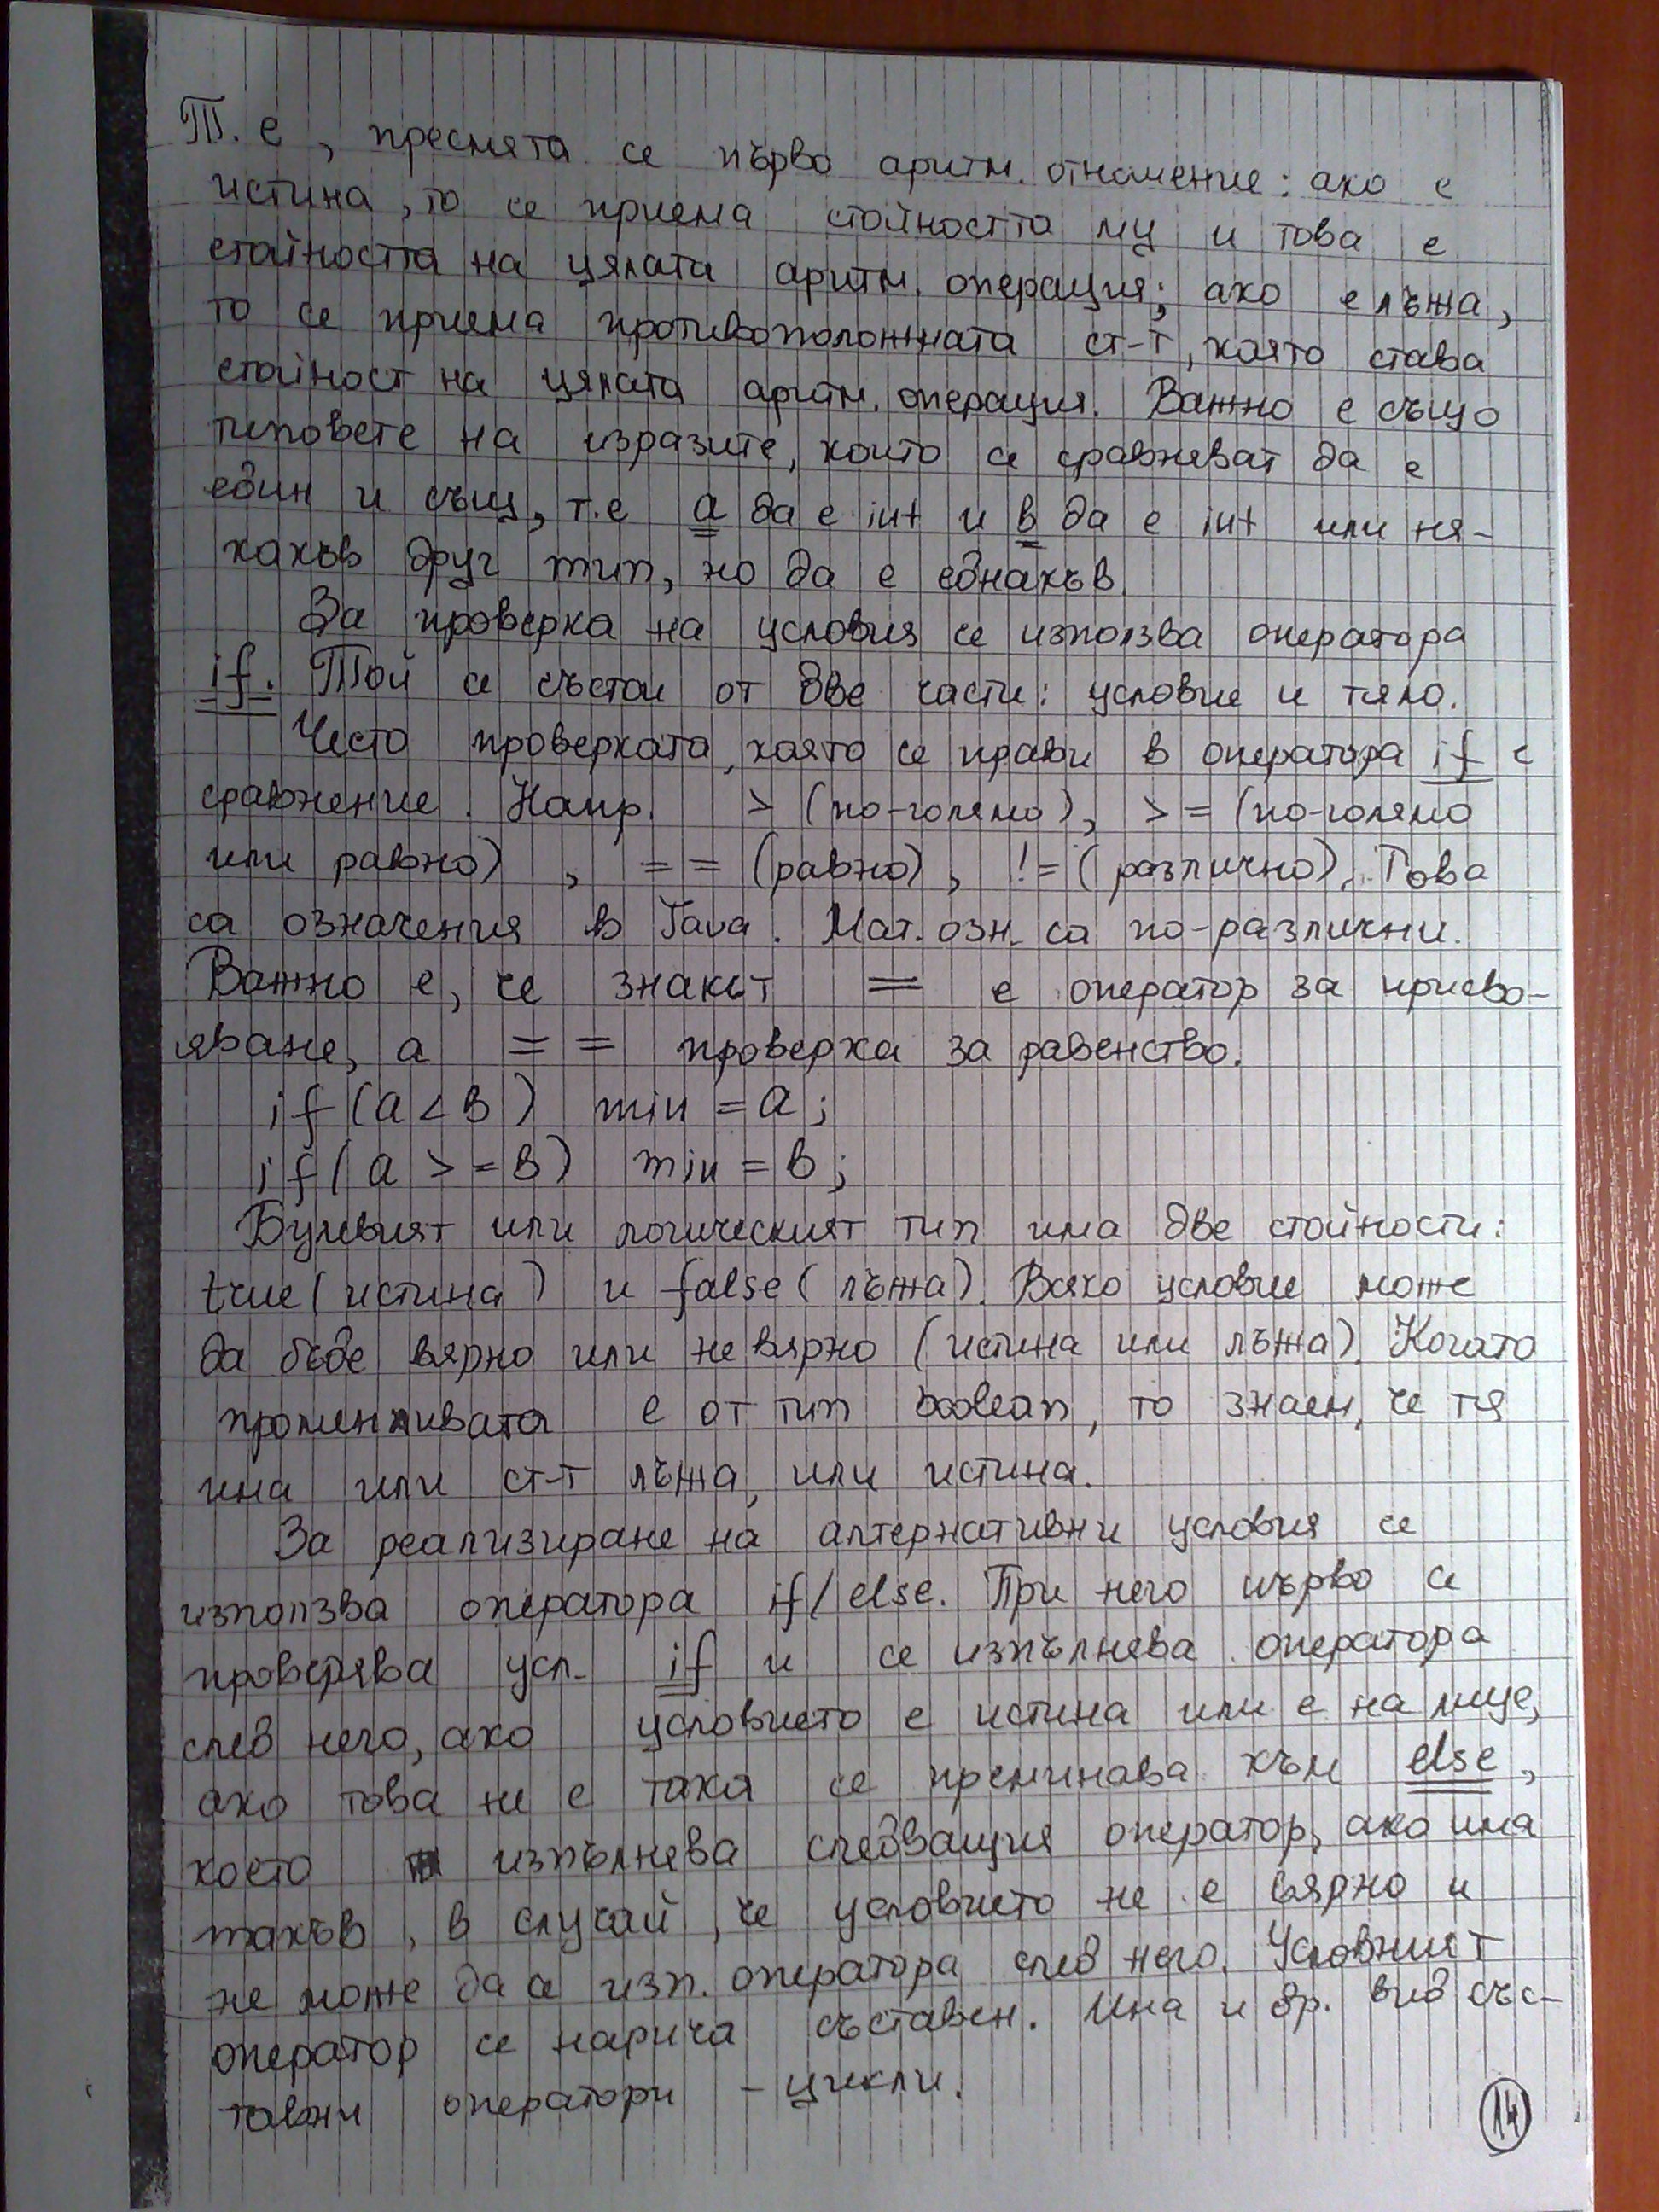 Т. е, пресмята се първо аритм. отношение: ако е
истина, то се приема стойността му и това е
стойността на цялата аритм. операция; ако е лъжа,
то се приема противоположната ст-т, която става
стойност на цялата аритм. операция. Важно е също
типовете на изразите, които се сравняват да е
един и същ, т.е a да е int и в да е int или ня-
какъв друг тип, но да е еднакъв.
За проверка на условия се използва оператора
if. Той се състои от две части: условие и тяло.
Често проверката, която се прави в оператора if е
сравнение. Напр. > (по-голямо), >= (по-голямо
или равно) , == (равно), != (различно). Това
са означения в Java. Мат. озн. са по-различни.
Важно е, че знакът = е оператор за присво-
яване, а == проверка за равенство.
if (a < в) min = a;
if (a >= в) min = в;
Булевият или логическият тип има две стойности:
true (истина) и false (лъжа). Всяко условие може
да бъде вярно или невярно (истина или лъжа). Когато
променливата е от тип boolean, то знаем, че тя
има или ст-т лъжа, или истина.
За реализиране на алтернативни условия се
използва оператора if/else. При него първо се
проверява усл. if и се изпълнява оператора
след него, ако условието е истина или е на лице,
ако това не е така се преминава към else,
което изпълнява следващия оператор, ако има
такъв, в случай, че условието не е вярно и
не може да се изп. оператора след него. Условният
оператор се нарича съставен. Има и др. вид със-
тавни оператори - цикли.
14